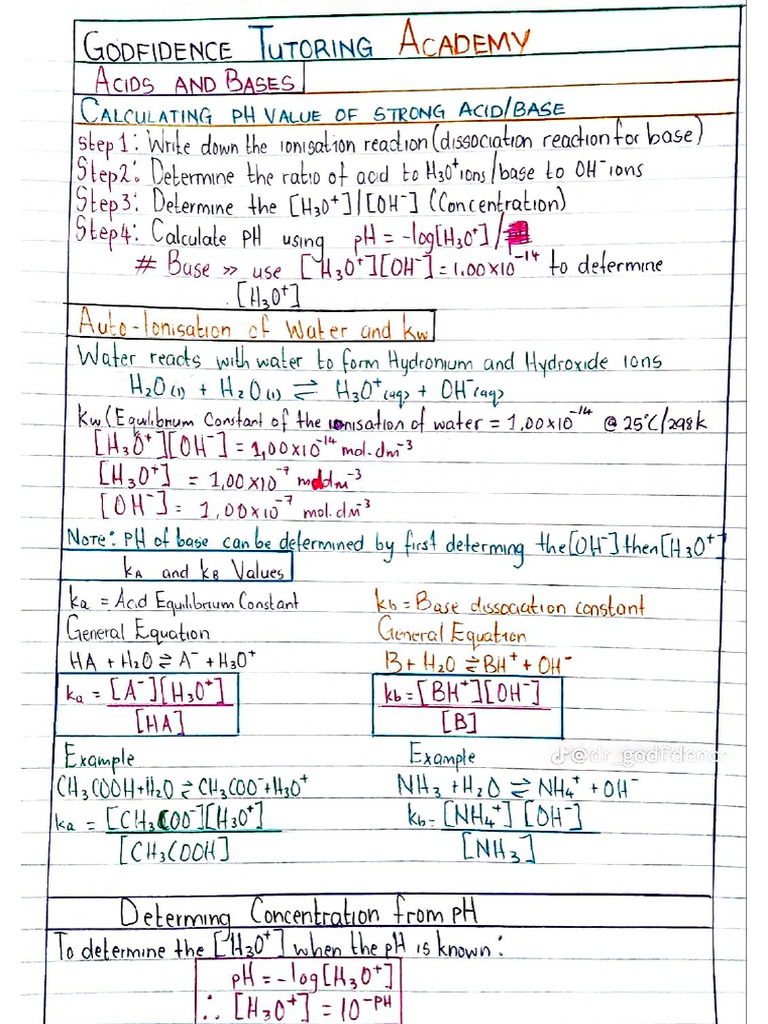 GODFIDENCE TUTORING ACADEMY
ACIDS AND BASES
CALCULATING PH VALUE OF STRONG ACID/BASE
Step 1: Write down the ionisation reaction (dissociation reaction for base)
Step 2: Determine the ratio of acid to H₃O⁺ ions/base to OH⁻ ions
Step 3: Determine the [H₃O⁺]/[OH⁻] (Concentration)
Step 4: Calculate pH using pH = -log[H₃O⁺]/
# Base >> use [H₃O⁺][OH⁻] = 1.00×10⁻¹⁴ to determine
[H₃O⁺]
Auto-Ionisation of Water and kw
Water reacts with water to form Hydronium and Hydroxide ions
H₂O(l) + H₂O(l) ⇌ H₃O⁺(aq) + OH⁻(aq)
Kw (Equilibrium Constant of the ionisation of water = 1,00×10⁻¹⁴ @ 25°C/298k
[H₃O⁺][OH⁻] = 1,00×10⁻¹⁴ mol.dm⁻³
[H₃O⁺] = 1,00×10⁻⁷ moldm⁻³
[OH⁻] = 1,00×10⁻⁷ mol.dm⁻³
NOTE: PH of base can be determined by first determing the [OH⁻] then [H₃O⁺]
kA and kB Values
ka = Acid Equilibrium Constant
kb = Base dissociation constant
General Equation
General Equation
HA + H₂O ⇌ A⁻ + H₃O⁺
B + H₂O ⇌ BH⁺ + OH⁻
ka = [A⁻][H₃O⁺]
[HA]
kb = [BH⁺][OH⁻]
[B]
Example
Example
@dr_godfidence
CH₃COOH + H₂O ⇌ CH₃COO⁻ + H₃O⁺
NH₃ + H₂O ⇌ NH₄⁺ + OH⁻
ka = [CH₃COO⁻][H₃O⁺]
[CH₃COOH]
kb = [NH₄⁺][OH⁻]
[NH₃]
Determing Concentration from pH
To determine the [H₃O⁺] when the pH is known:
pH = -log[H₃O⁺]
∴ [H₃O⁺] = 10⁻ᵖᴴ